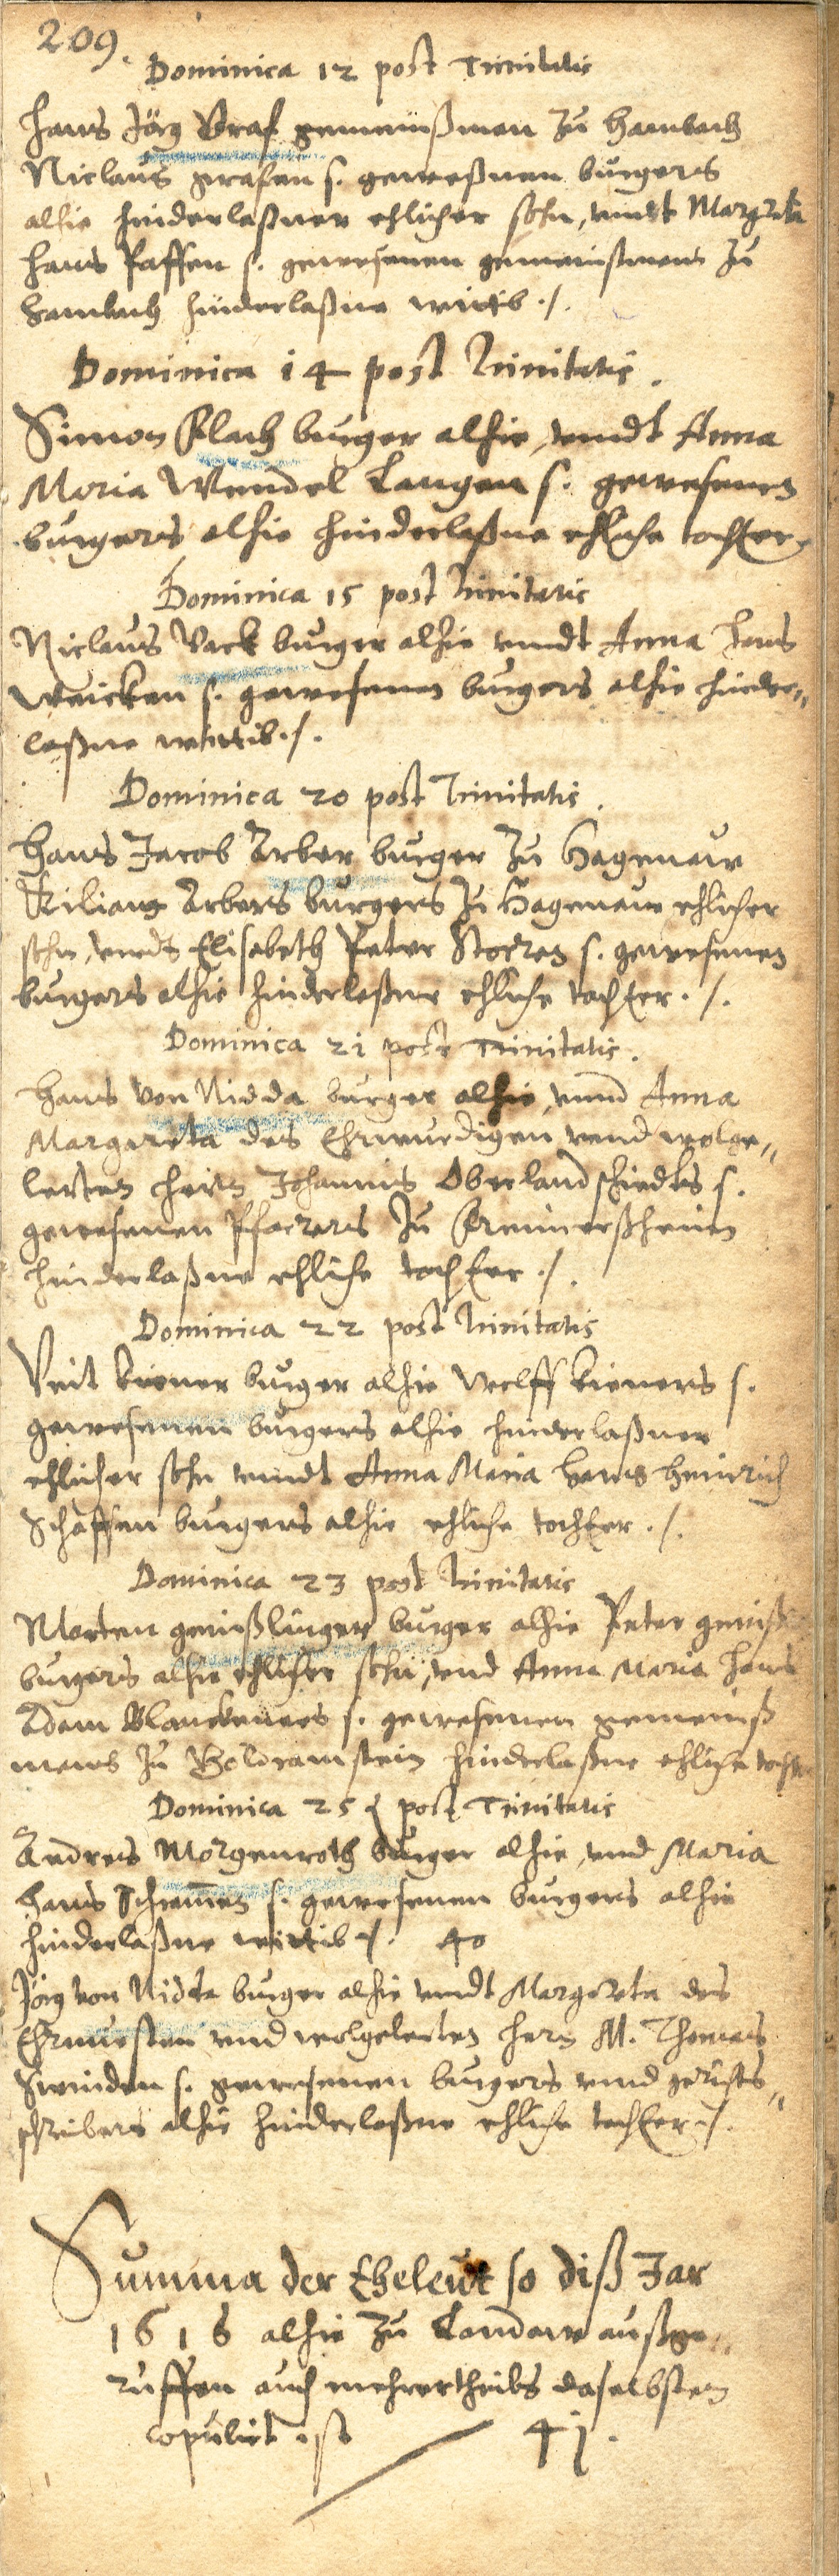 209.
Dominica 12 post Trinitatis
Hans Jörg Graf gemeinßman zu Hambach
Niclaus grafen s. geweßnen burgers
alhie hinderlaßner ehlicher sohn, undt Margreta
Hans Pfaffen s. gewesenen gemeinßmans zu
Hambach hinderlaßne wittib ./.
Dominica 14 post Trinitatis.
Simon Flach burger alhie, undt Anna
Maria Wendel Langen s. gewesenen
burgers alhie hinderlaßne ehliche tochter.
Dominica 15 post Trinitatis
Niclaus Vack burger alhie undt Anna Hans
Weicken s. gewesenen burgers alhie hinder„
laßne wittib ./.
Dominica 20 post Trinitatis.
Hans Jacob Arber burger zu Hagenaw
Kilians Arbers burgers zu Hagenaw ehlicher
sohn, undt Elisabeth Peter Storren s. gewesenen
burgers alhie hinderlaßne ehliche tochter ./.
Dominica 21 post Trinitatis.
Hans von Nidda burger alhie, und Anna
Margareta des Ehrwurdigen und wolge„
lerten hern Johannis Oberlandschiedts s.
gewesenen Pfarrers zu Freimerßheim
hinderlaßne ehliche tochter ./.
Dominica 22 post Trinitatis
Veit Kiener burger alhie Wolff Kieners s.
gewesenen burgers alhie hinderlaßner
ehlicher sohn undt Anna Maria Hans Heinrich
Schaffen burgers alhie ehliche tochter ./.
Dominica 23 post Trinitatis
Marten genißlinger burger alhie Peter geniß
burgers alhie ehlicher sohn, und Anna Maria Hans
Adam Blanckeners s. gewesenen gemeinß
mans zu Goldramstein hinderlaßne ehliche tochter
Dominica 25 post Trinitatis
Andreas Morgenroth burger alhie, und Maria
Hans Schramen s. gewesenen burgers alhie
hinderlaßne wittib ./. 40
Jörg von Nidda burger alhie undt Margreta des
Ehrnvesten und wolgelerten hern M. Thomas
s. gewesenen burgers und gerichts„
schreibers alhie hinderlaßne ehliche tochter ./.
Summa der Eheleut so diß Jar
1616 alhie zu Landaw außge„
ruffen auch mehrertheils daselbsten
copulirt ist 41.